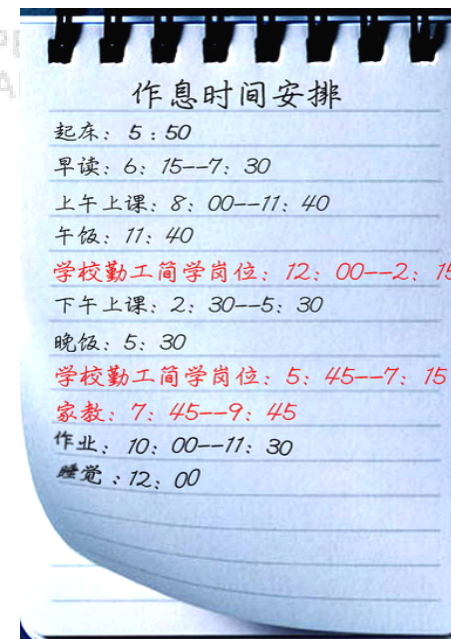 作息时间安排
起床：5：50
早读：6：15--7：30
上午上课：8：00--11：40
午饭：11：40
学校勤工简学岗位：12：00--2：15
下午上课：2：30--5：30
晚饭：5：30
学校勤工简学岗位：5：45--7：15
家教：7：45--9：45
作业：10：00--11：30
睡觉：12：00